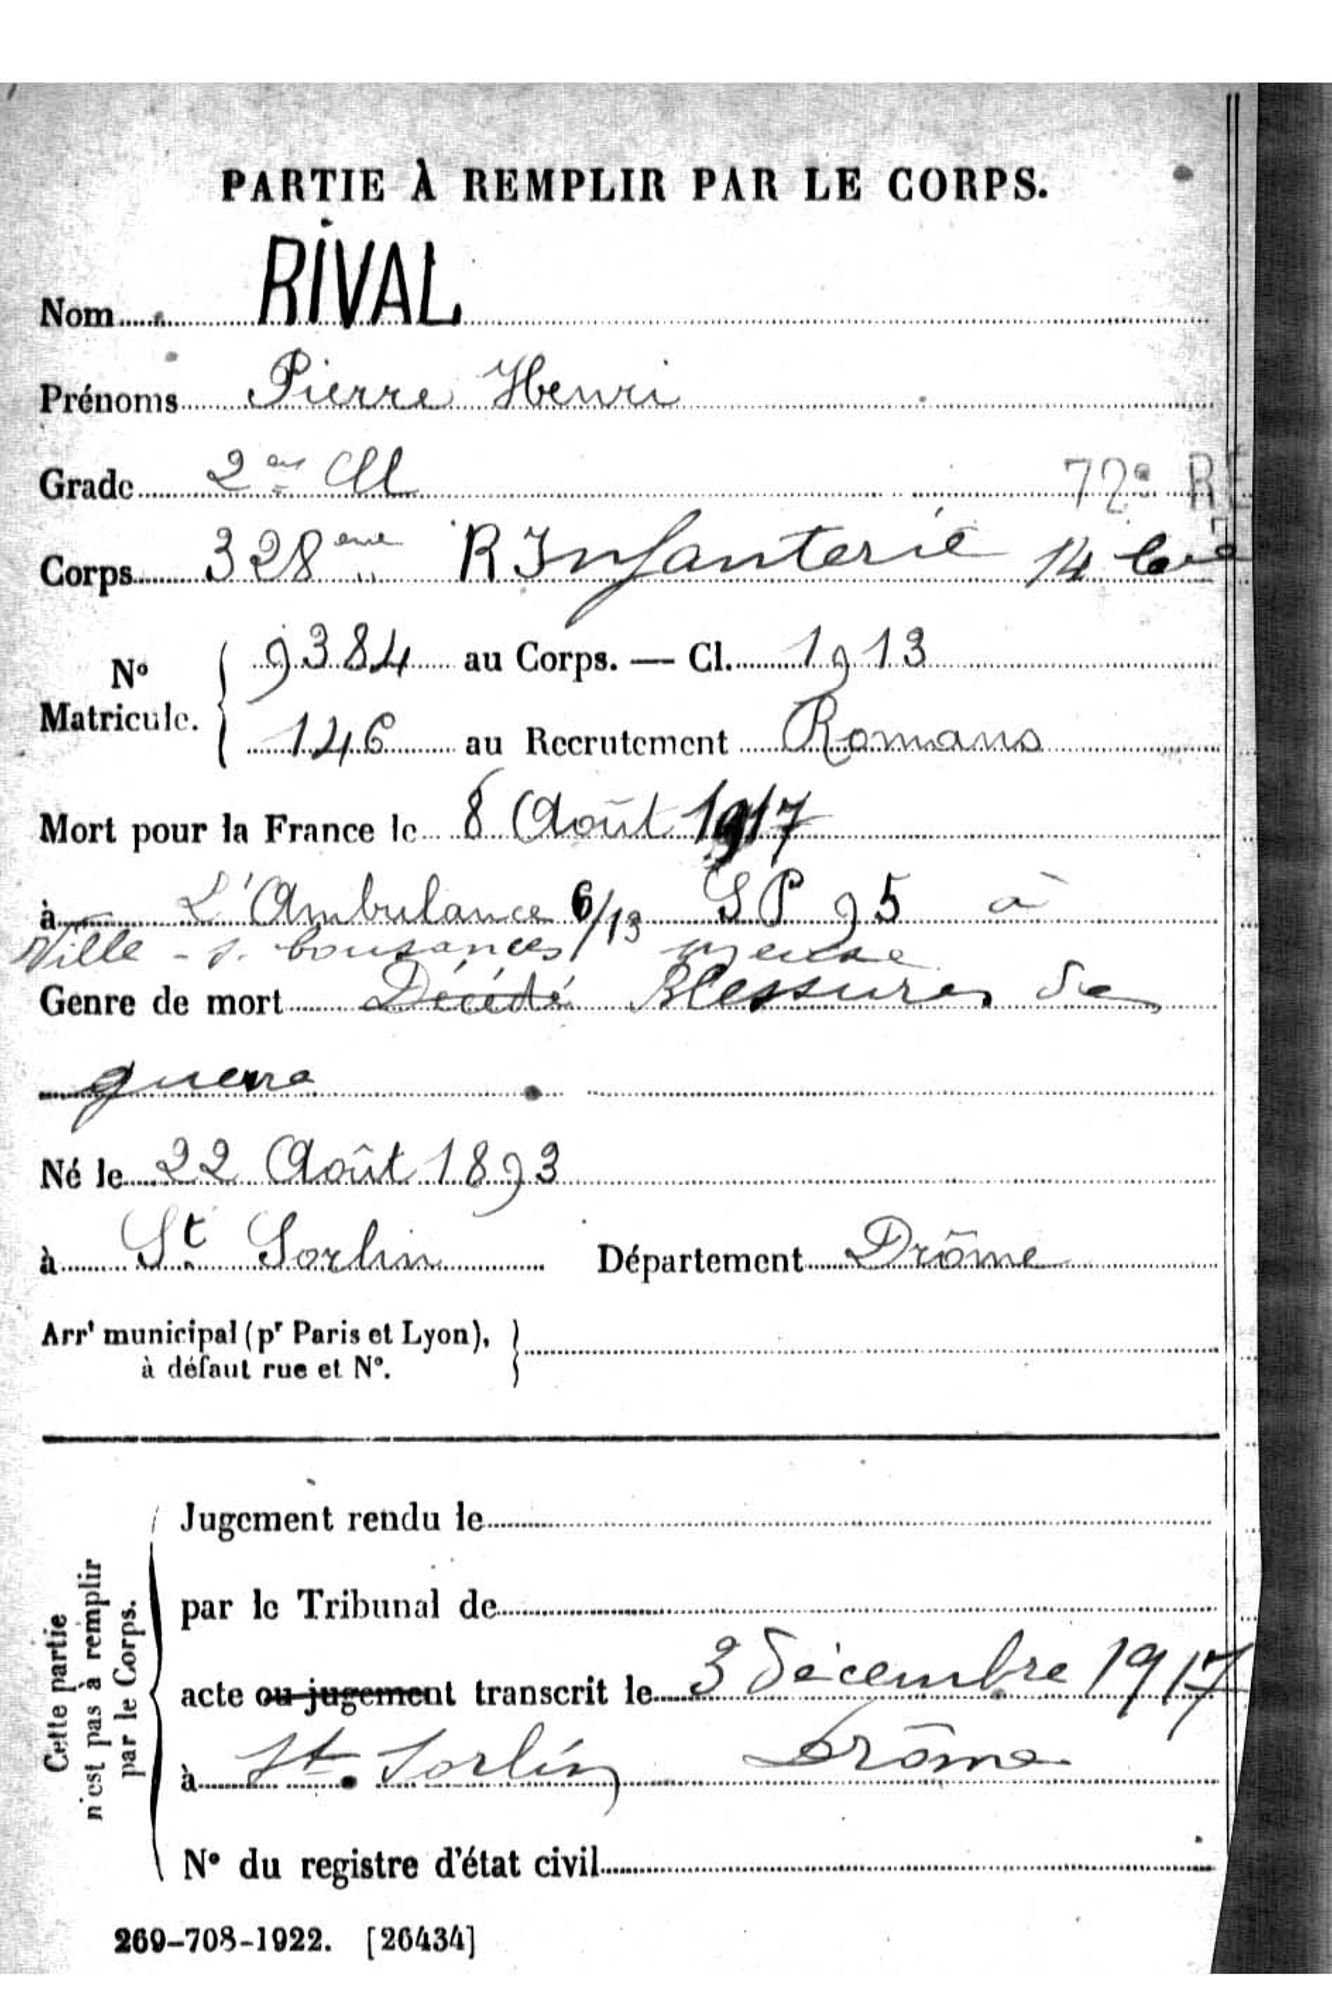 PARTIE À REMPLIR PAR LE CORPS.
Nom RIVAL
Prénoms Pierre Henri
Grade 2ème Cl
72e RE
Corps 328ème R Infanterie 14 Cie
N° Matricule.
9384 au Corps. — Cl. 1913
146 au Recrutement Romans
Mort pour la France le 8 Août 1917
à L'Ambulance 6/13 SP 95 à
Ville-s. Cousances meuse
Genre de mort Décédé Blessures de
guerre
Né le 22 Août 1893
à St. Sorlin Département Drôme
Arrt municipal (pr Paris et Lyon),
à défaut rue et N°.
Cette partie
n'est pas à remplir
par le Corps.
Jugement rendu le
par le Tribunal de
acte ou jugement transcrit le 3 décembre 1917
à St. Sorlin Drôme
N° du registre d'état civil
269-708-1922. [26434]